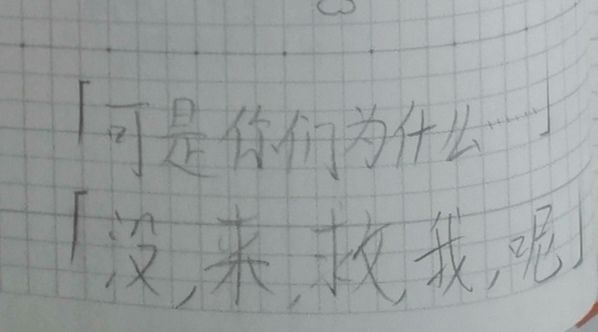 「可是你们为什么……」
「没,来,救,我,呢」